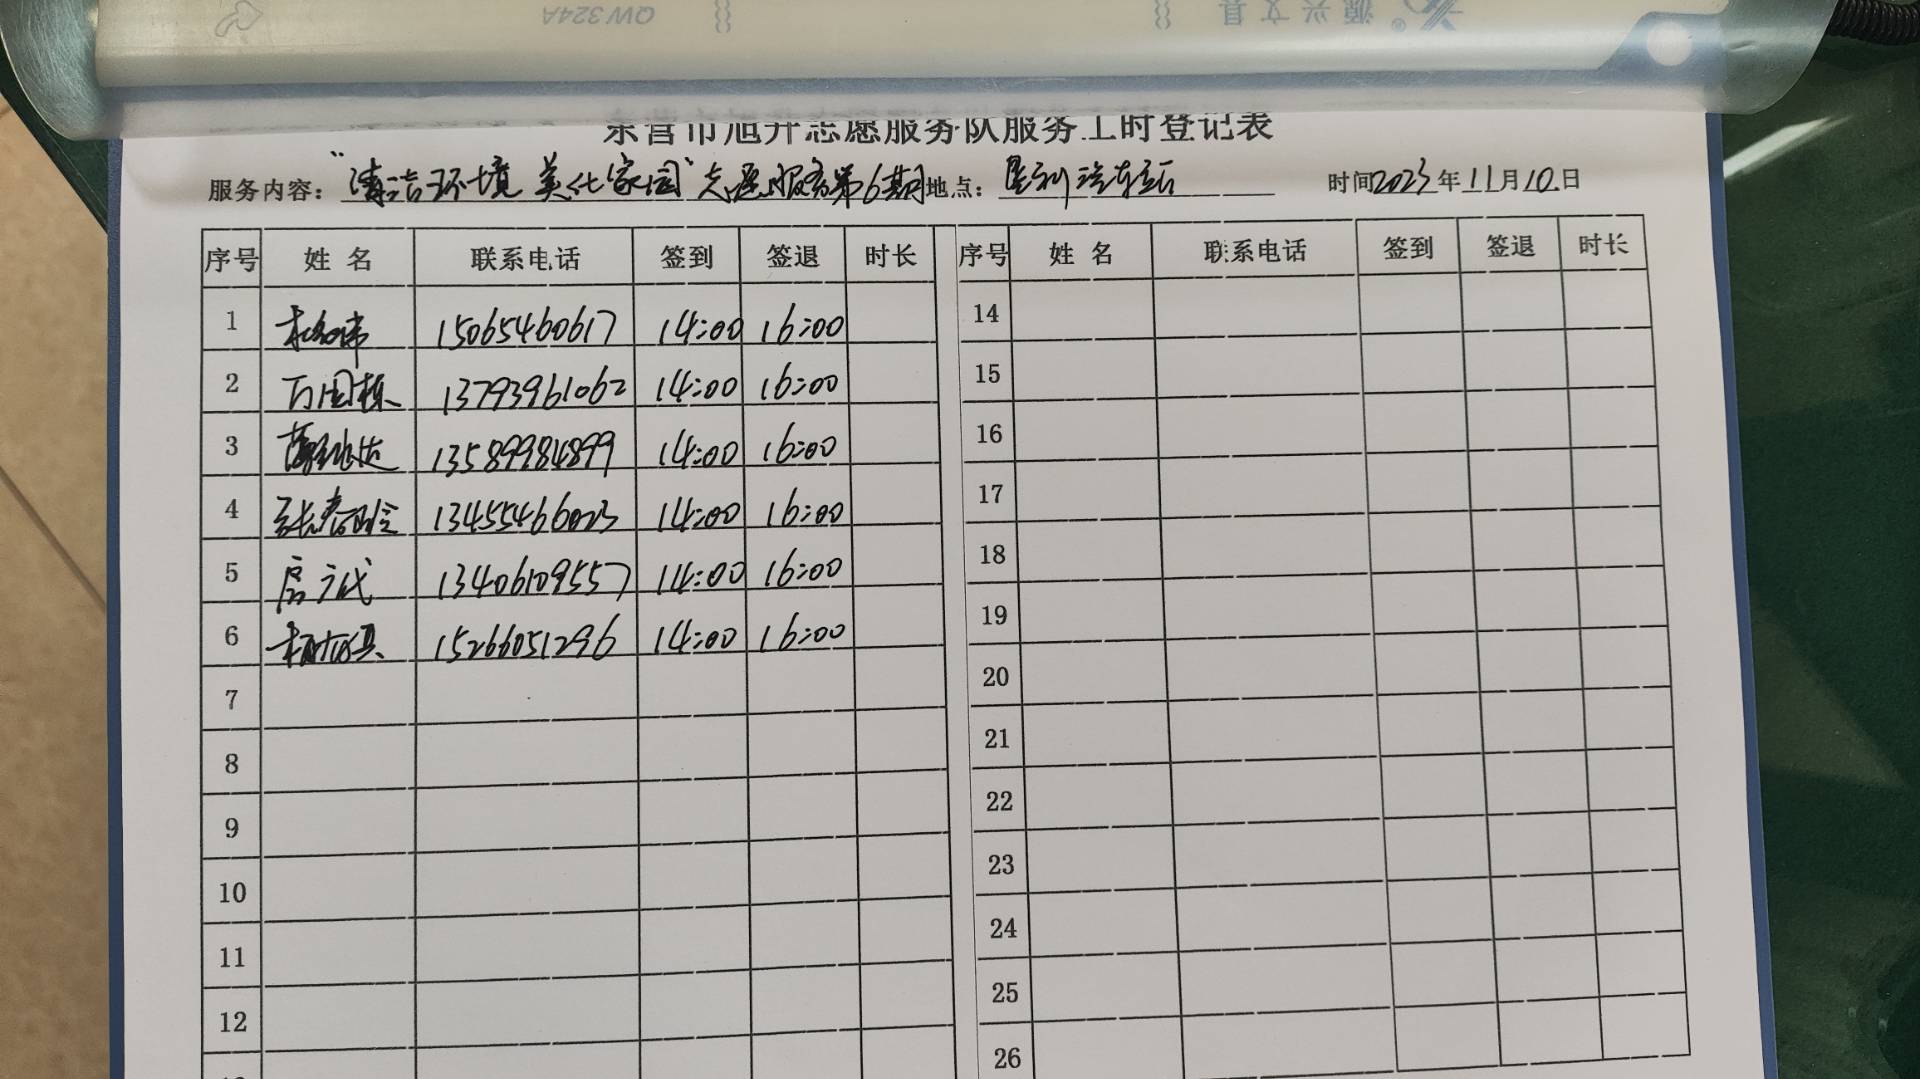 QW324A
源兴文具
东营市旭升志愿服务队服务工时登记表
服务内容：“清洁环境 美化家园”志愿服务第6期 地点：垦利汽车站 时间2023年11月10日
序号 姓名 联系电话 签到 签退 时长 序号 姓名 联系电话 签到 签退 时长
1 15065460617 14:00 16:00 14
2 万国栋 13793961062 14:00 16:00 15
3 13589984899 14:00 16:00 16
4 13455466023 14:00 16:00 17
5 13406109557 14:00 16:00 18
6 15266051296 14:00 16:00 19
7 20
8 21
9 22
10 23
11 24
12 25
26